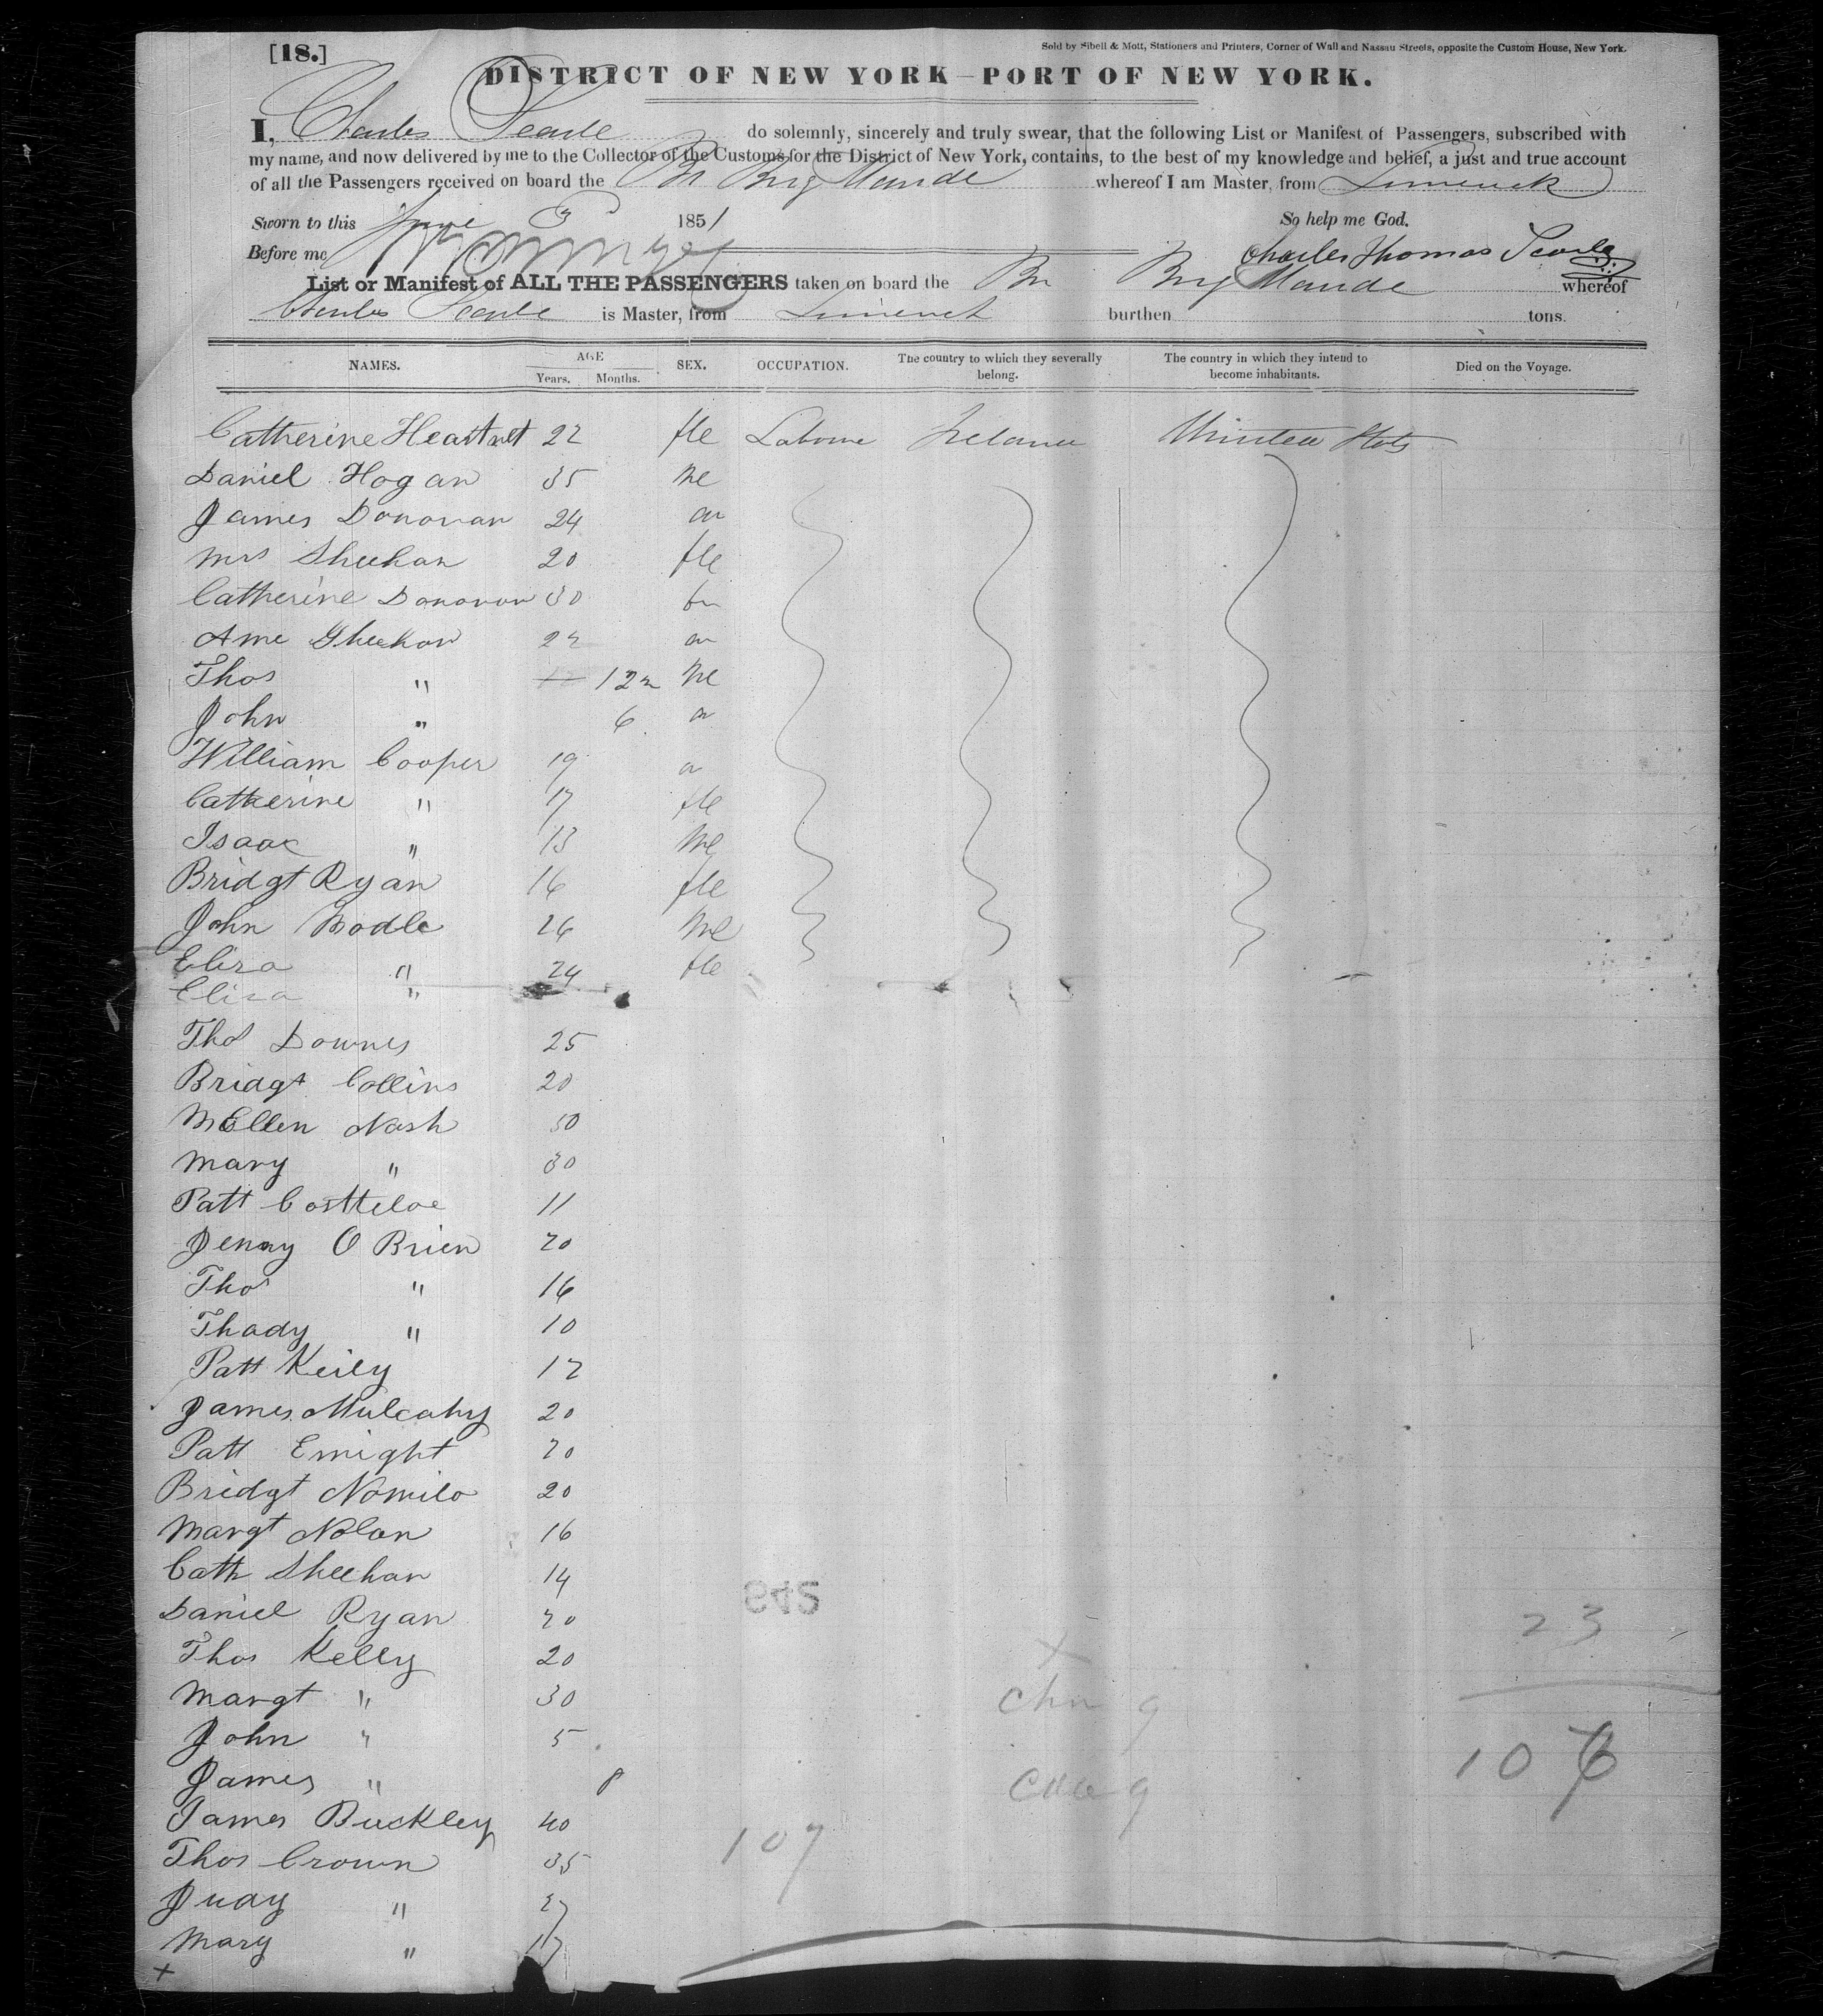 [18.]
Sold by Sibell & Mott, Stationers and Printers, Corner of Wall and Nassau Streets, opposite the Custom House, New York.
DISTRICT OF NEW YORK—PORT OF NEW YORK.
I, Charles Searle do solemnly, sincerely and truly swear, that the following List or Manifest of Passengers, subscribed with
my name, and now delivered by me to the Collector of the Customs for the District of New York, contains, to the best of my knowledge and belief, a just and true account
of all the Passengers received on board the Br Brig Maude whereof I am Master, from Limerick
Sworn to this June 3 1851 So help me God.
Before me Charles Thomas Searle
List or Manifest of ALL THE PASSENGERS taken on board the Br Brig Maude whereof
Charles Searle is Master, from Limerick burthen tons.
NAMES. AGE SEX. OCCUPATION. The country to which they severally belong. The country in which they intend to become inhabitants. Died on the Voyage.
Years. Months.
Catherine Heartnet 22 fle Labour Ireland United Stats
Daniel Hogan 35 Me
James Donovan 24 "
Mrs Sheehan 20 fle
Catherine Donovan 30
Ame Sheehan 22
Thos " 12 Me
John " 6
William Cooper 19
Catherine " 17 fle
Isaac " 13 Me
Bridgt Ryan 16 fle
John Bodle 26 Me
Eliza " 24 fle
Eliza "
Thos Downes 25
Bridgt Collins 20
Ellen Nash 50
Mary " 30
Patt Costteloe 11
Denny O Brien 20
Thos " 16
Thady " 10
Patt Keily 12
James Mulcahy 20
Patt Enright 20
Bridgt Nomilo 20
Margt Nolan 16
Cath Sheehan 14
Daniel Ryan 20
Thos Kelly 20
Margt " 30
John " 5
James " 8
James Buckley 40
Thos Crown 35
Juay "
Mary "
542
X
chn 9
23
106
107
X